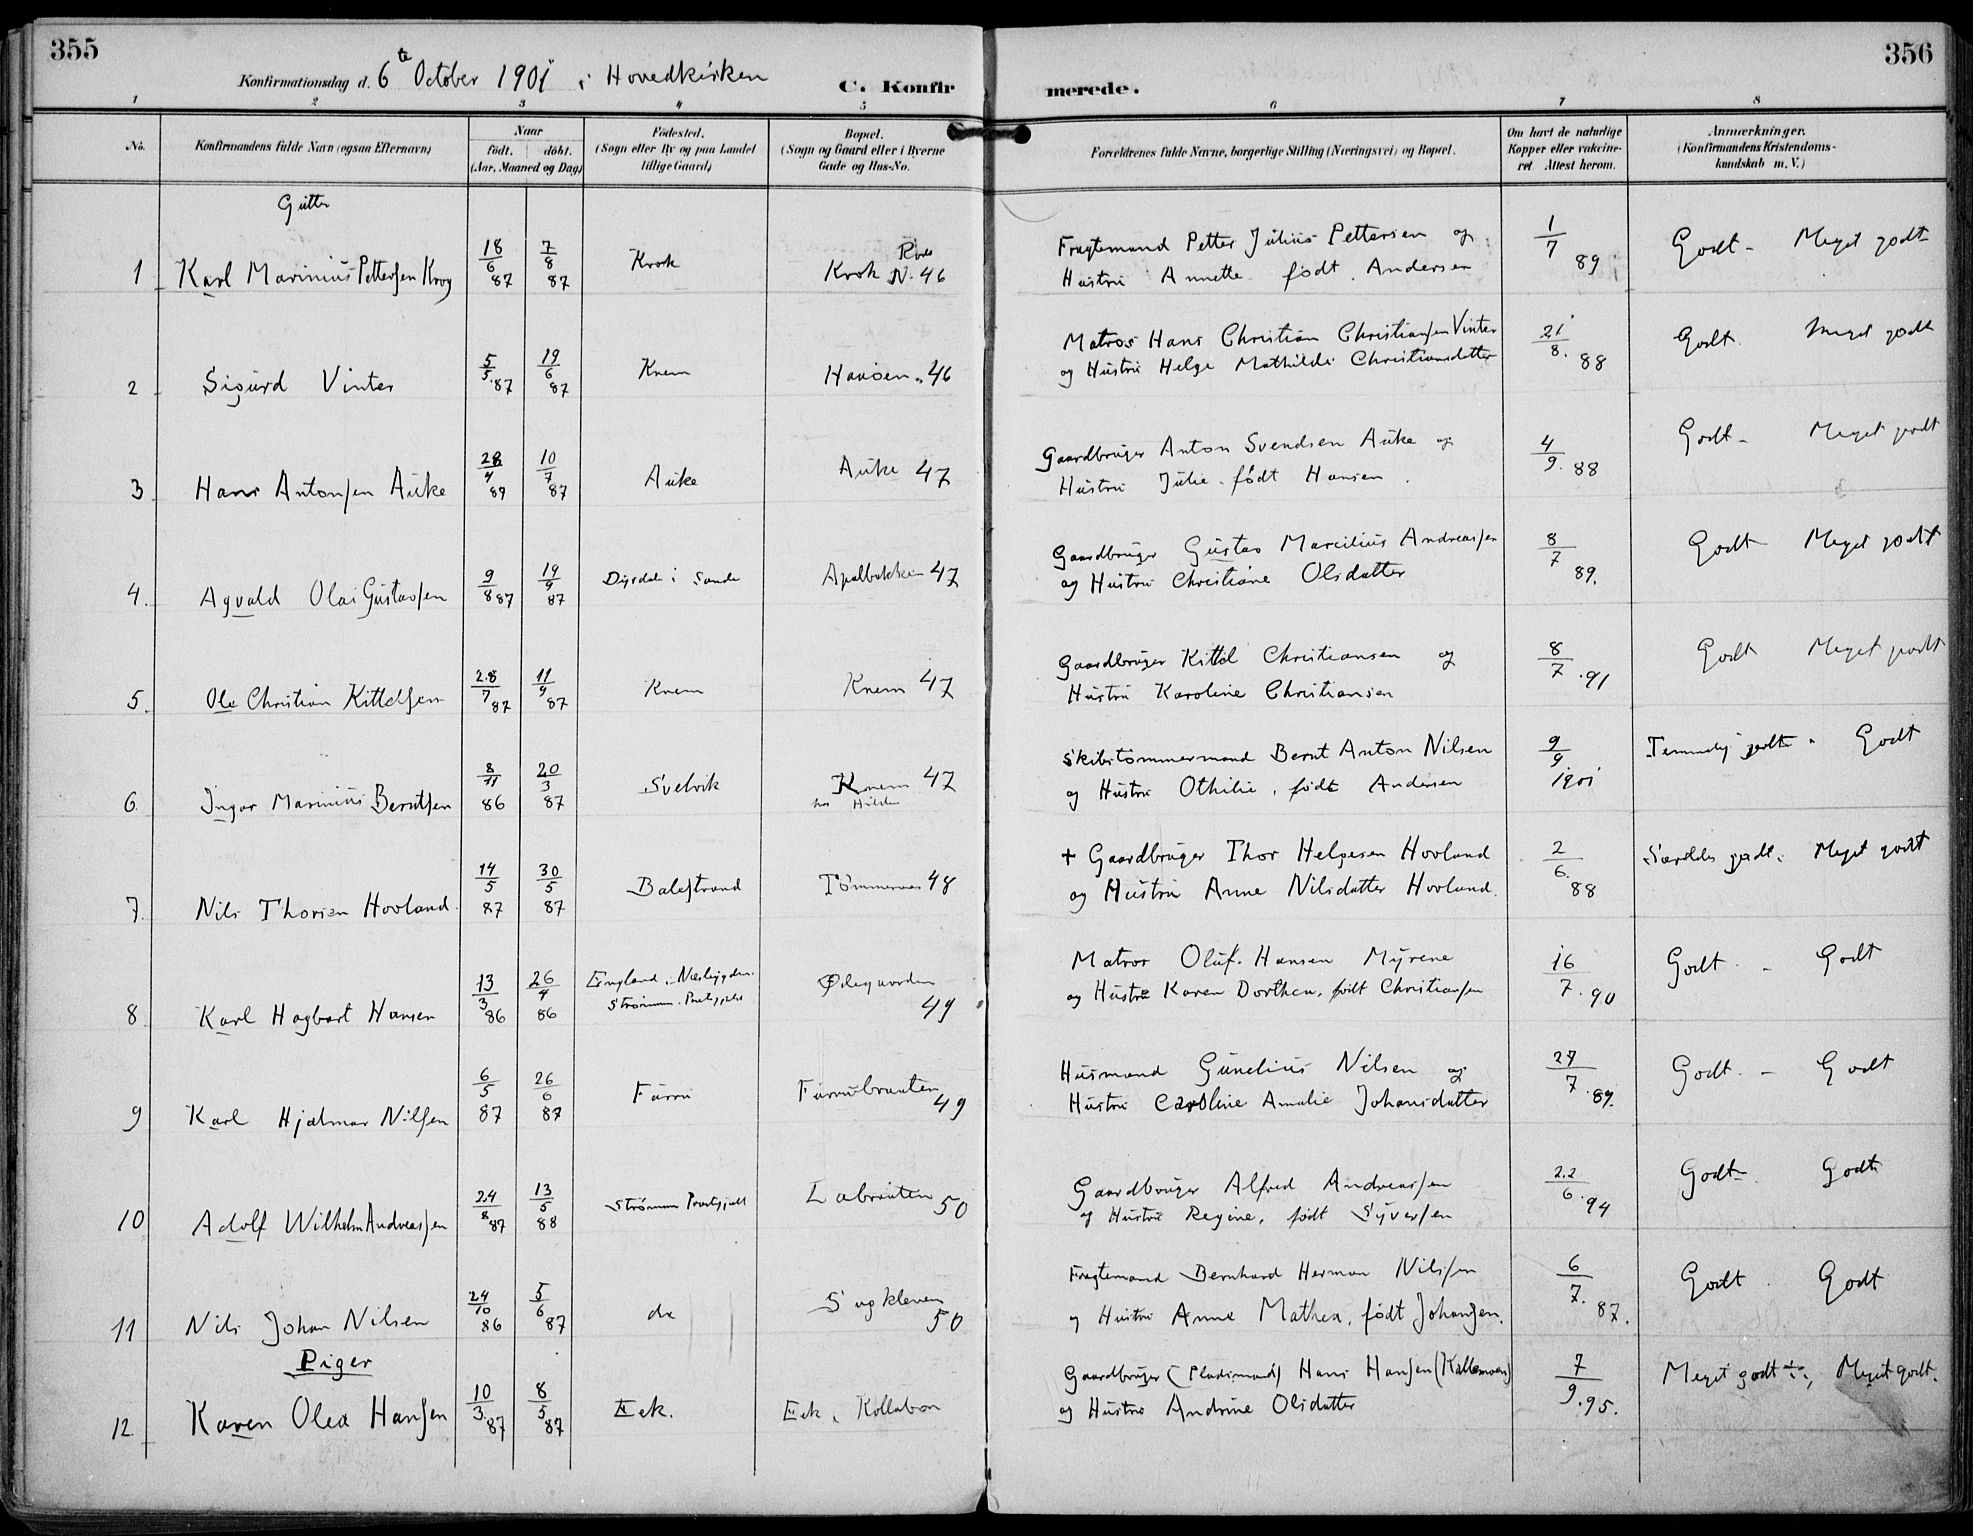 355
356
Konfirmationsdag d. 6te October 1901 i Hovedkirken
C. Konfirmerede.
1 2 3 4 5 6 7 8
No.
Konfirmandens fulde Navn (ogsaa Efternavn)
Naar
født. døbt.
(Aar, Maaned og Dag)
Fødested.
(Sogn eller By og paa Landet
tillige Gaard)
Bopæl.
(Sogn og Gaard eller i Byerne
Gade og Hus-No.
Forældrenes fulde Navne, borgerlige Stilling (Næringsvei) og Bopæl.
Om havt de naturlige
Kopper eller vakcine-
ret. Attest herom.
Anmærkninger.
(Konfirmandens Kristendoms-
kundskab m. V.)
Gutter
1 Karl Marinius Pettersen Krog 18/6 87 7/8 87 Krok Krok N. 46 Fragtemand Petter Julius Pettersen og
Hustru Annette født Andersen 1/7 89 Godt - Meget godt
2 Sigurd Vinter 5/5 87 19/6 87 Knem 46 Matros Hans Christian Christiansen Vinter
og Hustru Helge Mathilde Christiansdatter 21/8. 88 Godt. Meget godt
3 Hans Antonsen Auke 28/4 87 10/7 87 Auke Auke 47 Gaardbruger Anton Svendsen Auke og
Hustru Julie født Hansen. 4/9. 88 Godt - Meget godt
4. Agvald Olai Gustavsen 9/8 87 19/9 87 i Sande 47 Gaardbruger Gustav Marcilius Andreassen
og Hustru Christiane Olsdatter 8/7 89. Godt Meget godt
5. Ole Christian Kittelsen 28/7 87 11/9 87 Knem Knem 47 Gaardbruger Kittel Christiansen og
Hustru Karoline Christiansen 8/7 .91 Godt Meget godt
6. Ingar Marinius Berntsen 8/11 86 20/3 87 Svelvik Knem 47 Skibstømmermand Bernt Anton Nilsen
og Hustru Othilie, født Andersen 9/9 1901 Temmelig godt - Godt
7. Nils Thorsen Hovland 14/5 87 30/5 87 Balestrand Tømmernes 48 + Gaardbruger Thor Helgesen Hovland
og Hustru Anne Nilsdatter Hovland. 2/6. 88 Særdeles godt. Meget godt
8 Karl Hagbart Hansen 13/3 86 26/4 86 Strømm Præstegjeld Ødegaarden 49 Matros Oluf Hansen Myrene
og Hustru Karen Dorthea, født Christiansen 16/7 .90 Godt - Godt
9 Karl Hjalmar Nilsen 6/5 87 26/6 87 Furru Furrubraaten 49 Husmand Gunelius Nilsen og
Hustru Caroline Amalie Johansdatter 27/7 .89. Godt. - Godt
10 Adolf Wilhelm Andreassen 24/8 87 13/5 88 Strømm Præstegjeld Labraaten 50 Gaardbruger Alfred Andreassen
og Hustru Regine, født Syversen 22/6 .94 Godt - Godt
11 Nils Johan Nilsen 24/10 86 5/6 87 do Sagkleven 50 Fragtemand Bernhard Herman Nilssen
og Hustru Anne Mathea, født Johansen. 6/7. 87. Godt. Godt
Piger
12 Karen Olea Hansen 10/3 87 8/5 87 Eek. Eek, Gaardbruger (Pladsmand) Hans Hansen
og Hustru Andrine Olsdatter 7/9 .95. Meget godt ÷, Meget godt.